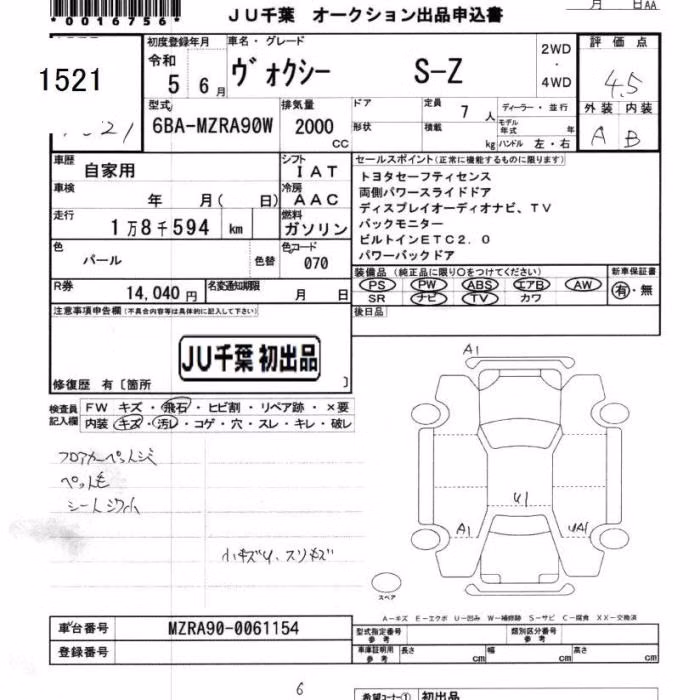 *0016756*
月 日AA
JU千葉 オークション出品申込書
1521
初度登録年月 車名・グレード
令和 5 6月 ヴォクシー S-Z
2WD ・ 4WD
評価点
4.5
外装 内装
A B
型式 6BA-MZRA90W
排気量 2000 CC
ドア 形状
定員 7人
積載 kg
ディーラー・並行
モデル年式 年
ハンドル 左・右
車歴 自家用
シフト IAT
車検 年 月( 日)
冷房 AAC
走行 1万8千594 km
燃料 ガソリン
色 パール 色替
色コード 070
R券 14,040円
名変通知期限 月 日
セールスポイント(正常に機能するものに限ります)
トヨタセーフティセンス
両側パワースライドドア
ディスプレイオーディオナビ、TV
バックモニター
ビルトインETC2.0
パワーバックドア
装備品 (純正品に限り○をつけてください)
PS PW ABS エアB AW
SR ナビ TV カワ
新車保証書
有・無
後日品
注意事項申告欄(不具合内容等は具体的に記入して下さい)
JU千葉 初出品
修復歴 有〔箇所 〕
検査員記入欄
FW キズ・飛石・ヒビ割・リペア跡・×要
内装 キズ・汚レ・コゲ・穴・スレ・キレ・破レ
フロアカーペットシミ
ペット毛
シートシワ小
小キズU、スリキズ
A1
U1
A1
UA1
スペア
A-キズ E-エクボ U-凹み W-補修跡 S-サビ C-腐食 XX-交換済
車台番号 MZRA90-0061154
登録番号
型式指定番号 参考
類別区分番号 参考
車庫証明用 参考 長さ cm 幅 cm 高さ cm
6
希望コーナー① 初出品